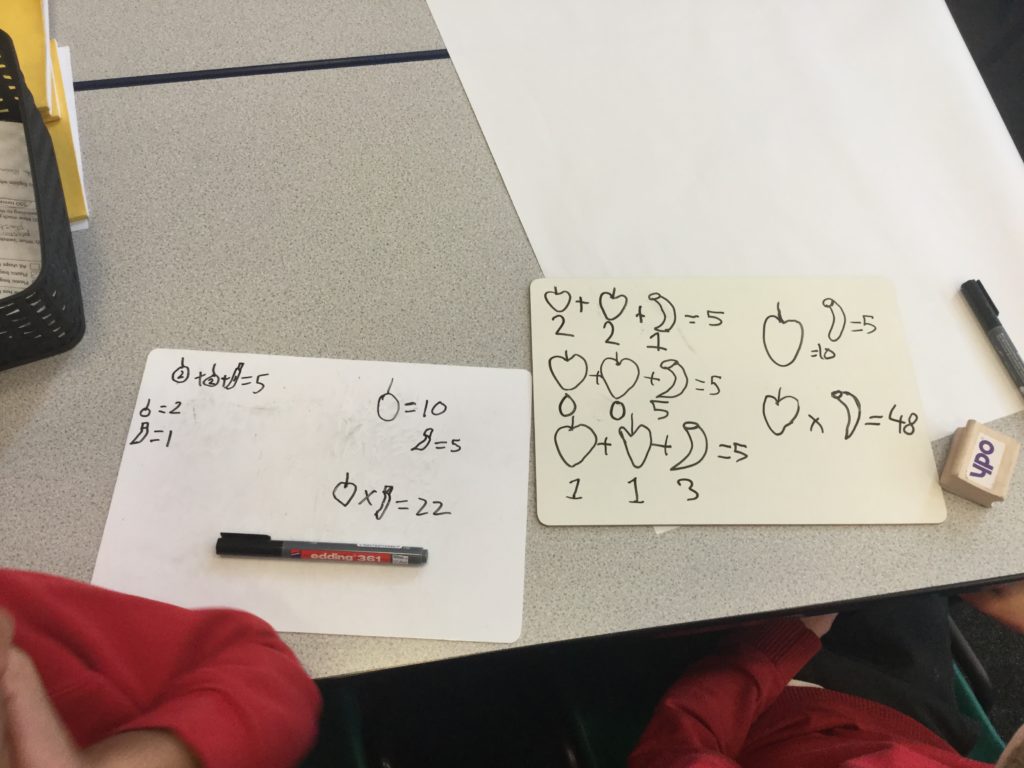 2 + 2 + = 5
= 2
= 1
= 10
= 5
x = 22
edding 361
+ + = 5
2 2 1
+ + = 5
0 0 5
+ + = 5
1 1 3
= 10
= 5
x = 48
ypo